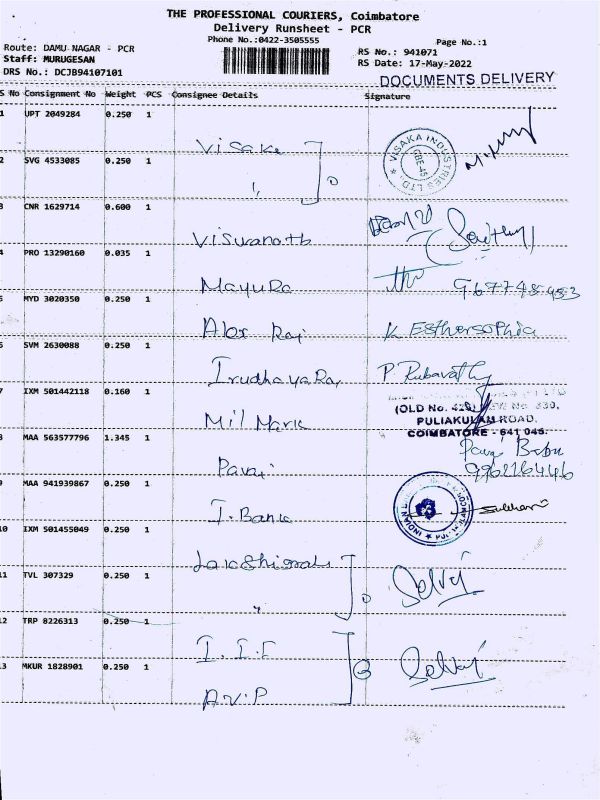 THE PROFESSIONAL COURIERS, Coimbatore
Delivery Runsheet - PCR
Phone No.:0422-3505555
Page No.:1
Route: DAMU NAGAR - PCR
RS No.: 941071
Staff: MURUGESAN
RS Date: 17-May-2022
DRS No.: DCJB94107101
DOCUMENTS DELIVERY
S No Consignment No Weight PCS Consignee Details Signature
1 UPT 2049284 0.250 1
VISAKA INDUSTRIES LTD. CBE-45
2 SVG 4533085 0.250 1
3 CNR 1629714 0.600 1
Viswanath
4 PRO 13290160 0.035 1
Mayura
5 MYD 3020350 0.250 1
Alex Raj K Esthersophia
6 SVM 2630088 0.250 1
IrudhayaRaj P. Rubavathy
7 IXM 501442118 0.160 1
(OLD No.
Mil Mark PULIAKULAM ROAD,
COIMBATORE - 641 045.
8 MAA 563577796 1.345 1
Pavai Babu
Pavai
9 MAA 941939867 0.250 1
I. Bank
10 IXM 501455049 0.250 1
11 TVL 307329 0.250 1
Selvi
12 TRP 8226313 0.250 1
13 MKUR 1828901 0.250 1
A.V.P